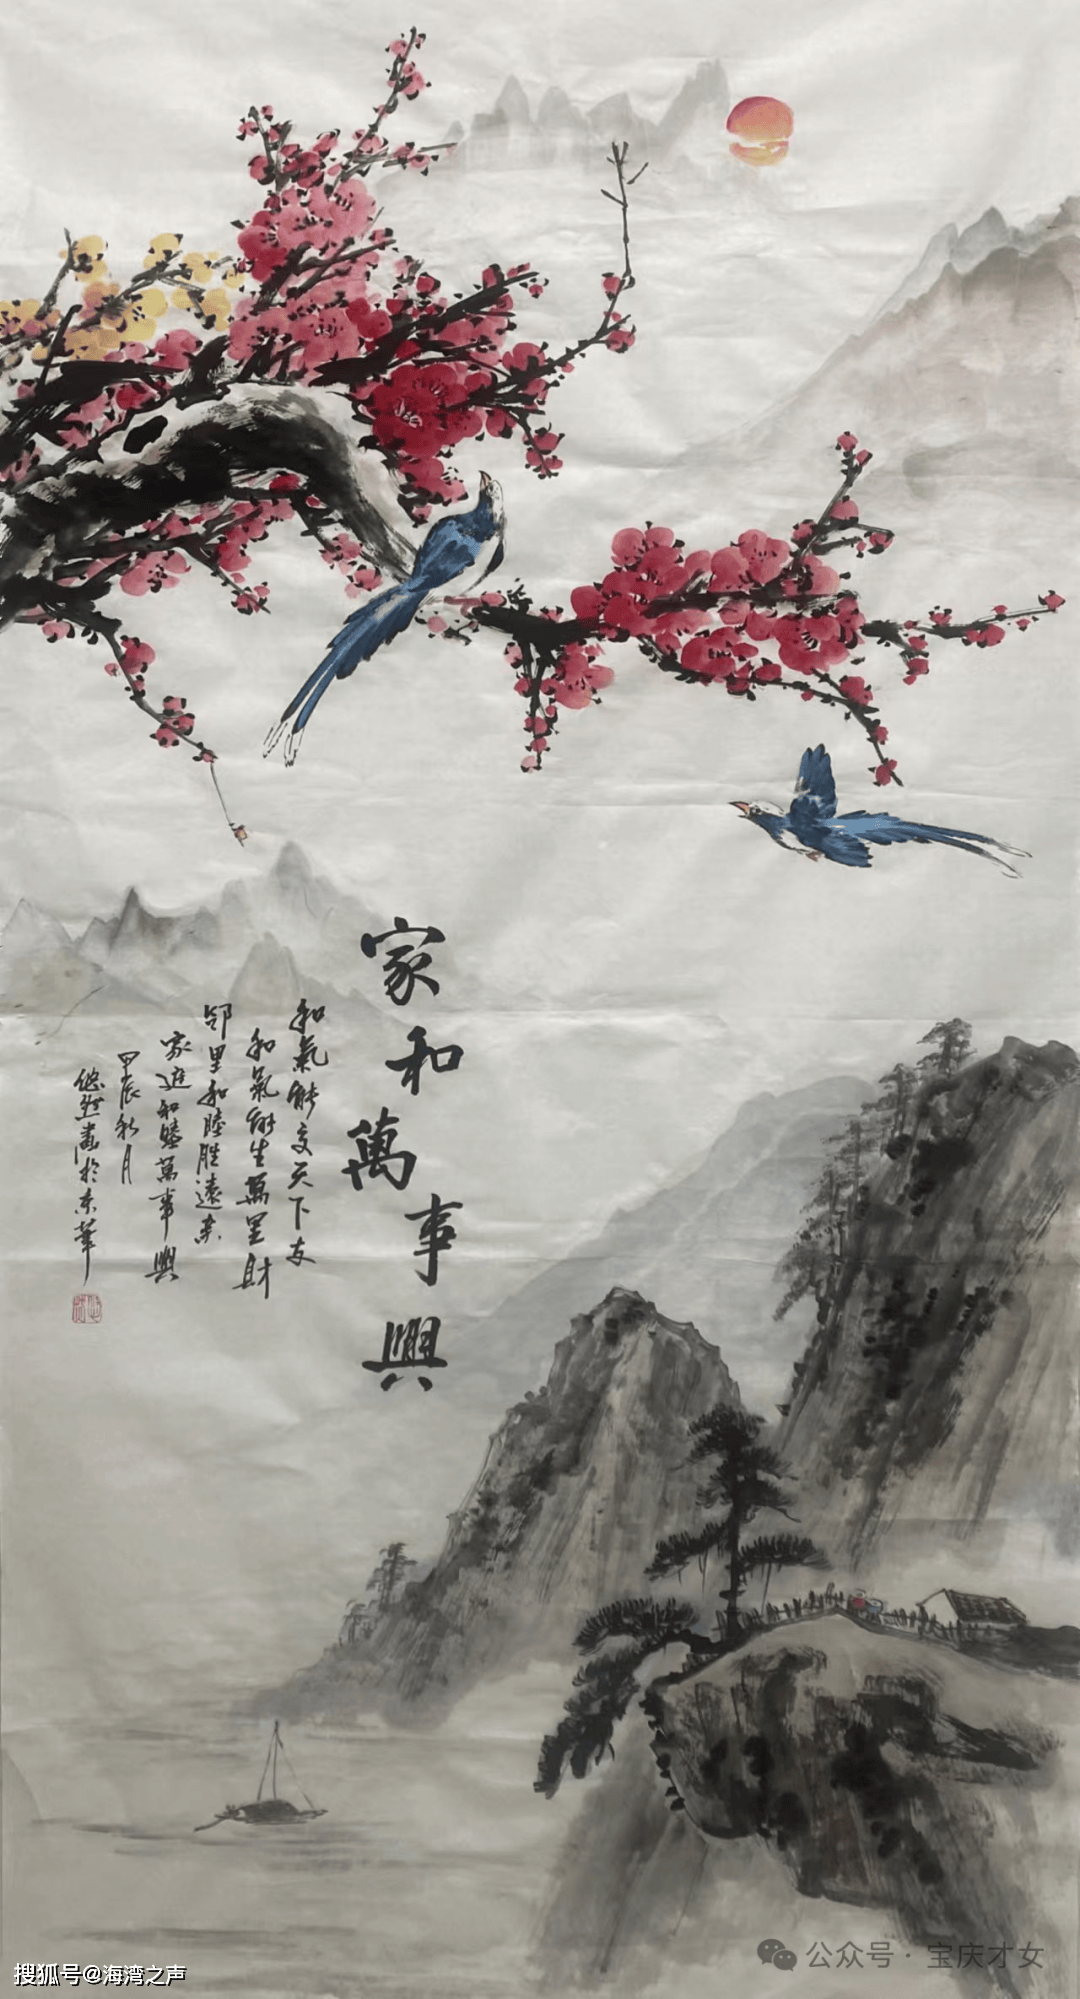 家和萬事興
和氣能交天下友
和氣能生萬里財
邻里和睦胜遠亲
家庭和睦萬事興
甲辰秋月
悠然畫於东華
搜狐号@海湾之声
公众号·宝庆才女